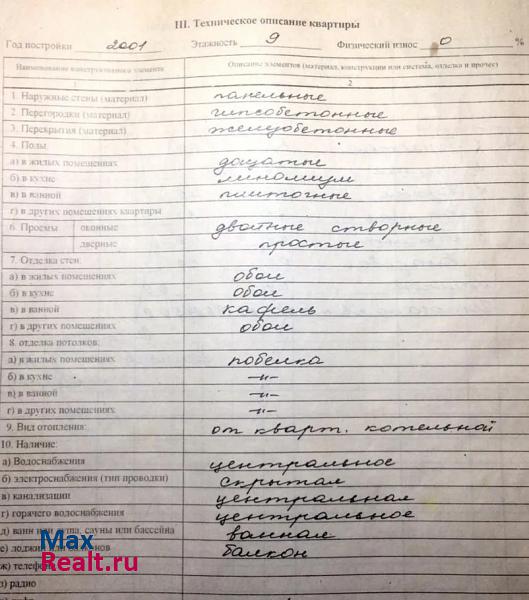 III. Техническое описание квартиры
Год постройки 2001 Этажность 9 Физический износ 0 %
Наименование конструктивного элемента Описание элементов (материал, конструкция или система, отделка и прочее)
1 2
1. Наружные стены (материал) панельные
2. Перегородки (материал) гипсобетонные
3. Перекрытия (материал) железобетонные
4. Полы
а) в жилых помещениях дощатые
б) в кухне линолиум
в) в ванной плиточные
г) в других помещениях квартиры
6. Проемы оконные двойные створные
дверные простые
7. Отделка стен:
а) в жилых помещениях обои
б) в кухне обои
в) в ванной кафель
г) в других помещениях обои
8. отделка потолков:
а) в жилых помещениях побелка
б) в кухне -"-
в) в ванной -"-
г) в других помещениях -"-
9. Вид отопления: от кварт. котельной
10. Наличие:
а) Водоснабжения центральное
б) электроснабжения (тип проводки) скрытая
в) канализации центральная
г) горячего водоснабжения центральное
д) ванн или душа, сауны или бассейна ванная
е) лоджии или балконов балкон
ж) телефона
з) радио
Max
Realt.ru